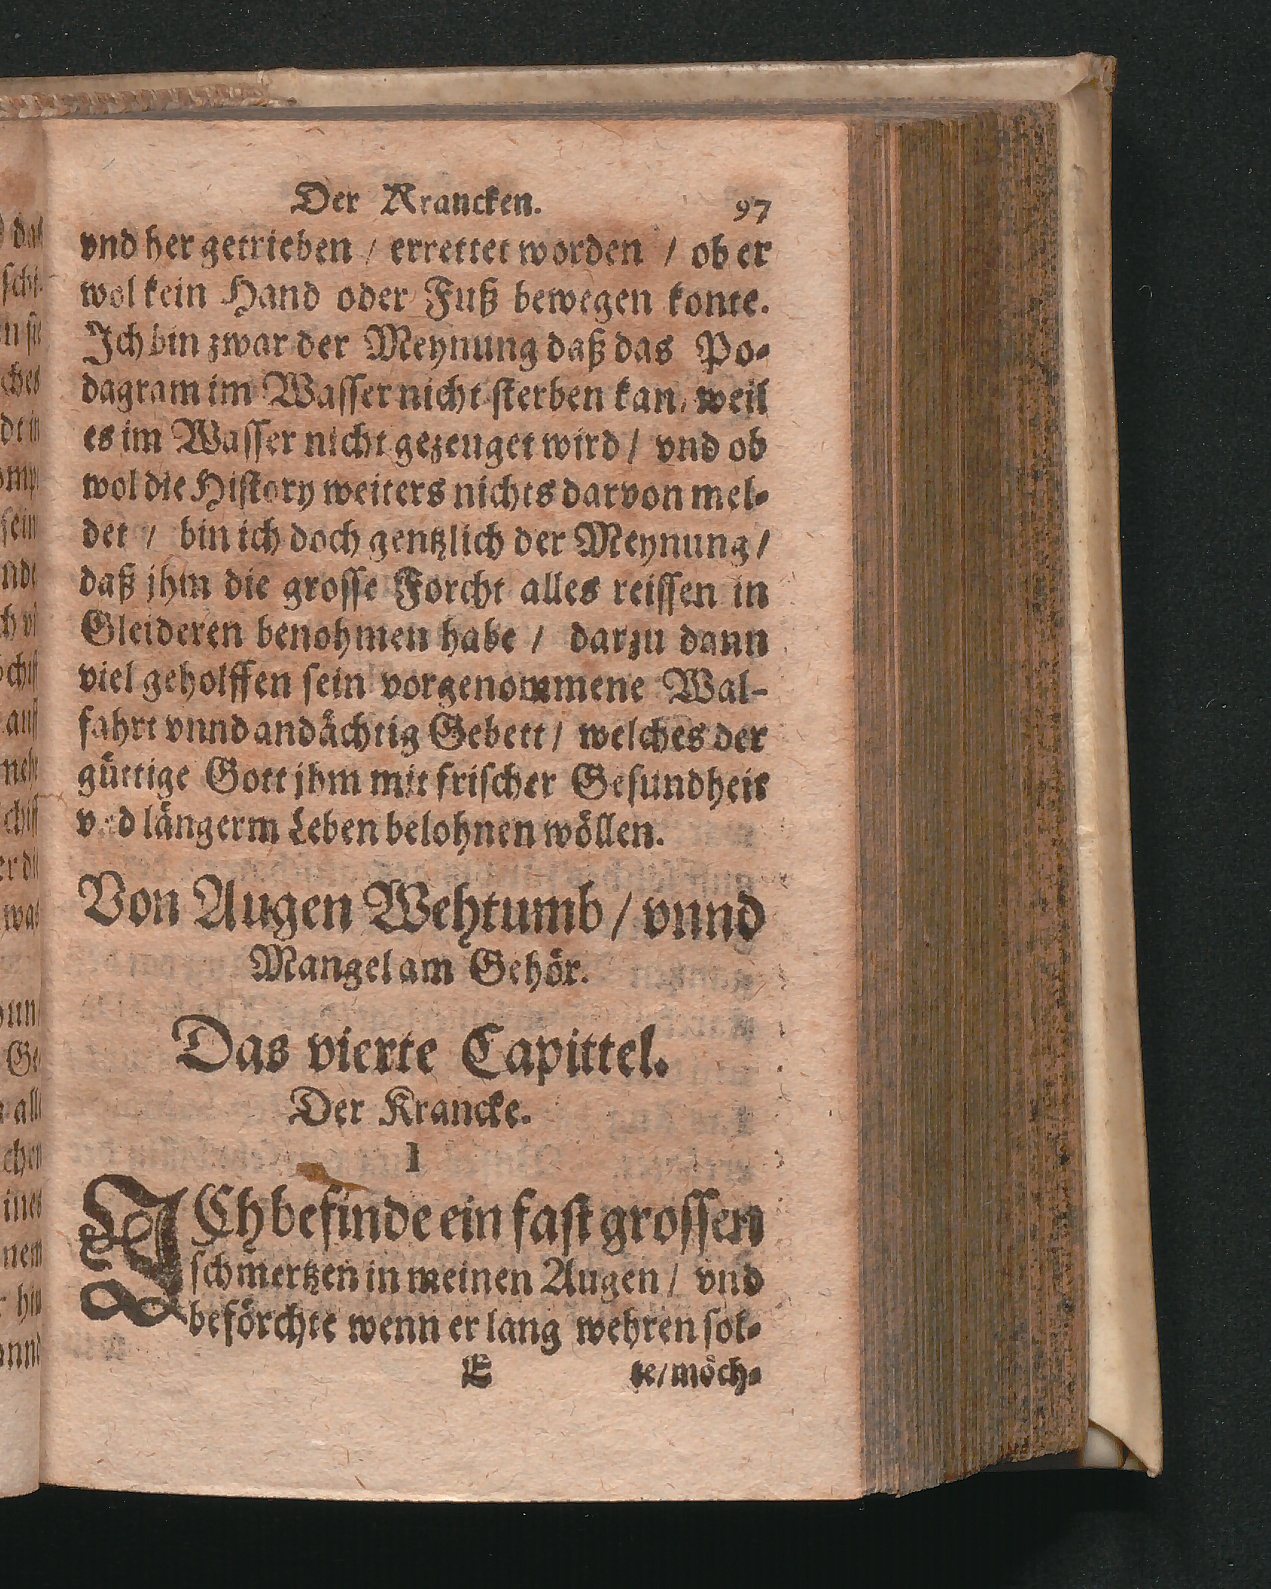 Der Krancken. 97
vnd her getrieben / errettet worden / ob er
wol kein Hand oder Fuß bewegen konte.
Ich bin zwar der Meynung daß das Po-
dagram im Wasser nicht sterben kan, weil
es im Wasser nicht gezeuget wird / vnd ob
wol die History weiters nichts darvon mel-
det / bin ich doch gentzlich der Meynung /
daß jhm die grosse Forcht alles reissen in
Gleideren benohmen habe / darzu dann
viel geholffen sein vorgenommene Wal-
fahrt vnnd andächtig Gebett / welches der
güttige Gott jhm mit frischer Gesundheit
vnd längerm Leben belohnen wöllen.
Von Augen Wehtumb / vnnd
Mangel am Gehör.
Das vierte Capittel.
Der Krancke.
1
ICh befinde ein fast grossen
schmertzen in meinen Augen / vnd
beförchte wenn er lang wehren sol-
E te / möch-